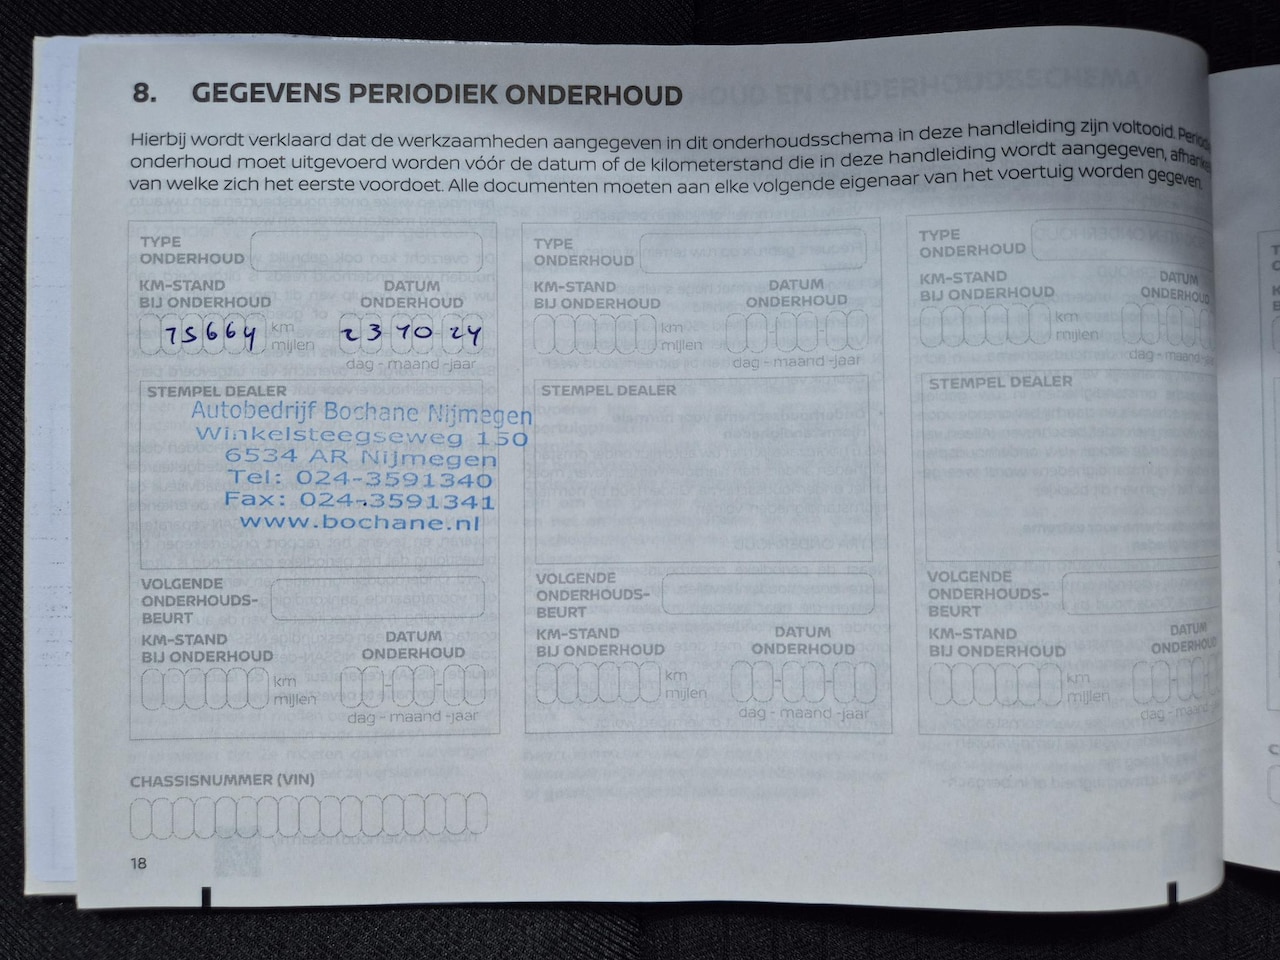 8. GEGEVENS PERIODIEK ONDERHOUD
Hierbij wordt verklaard dat de werkzaamheden aangegeven in dit onderhoudsschema in deze handleiding zijn voltooid.
onderhoud moet uitgevoerd worden vóór de datum of de kilometerstand die in deze handleiding wordt aangegeven,
van welke zich het eerste voordoet. Alle documenten moeten aan elke volgende eigenaar van het voertuig worden gegeven.
TYPE
ONDERHOUD
KM-STAND
BIJ ONDERHOUD
DATUM
ONDERHOUD
75664
km
mijlen
23-10-24
dag - maand -jaar
STEMPEL DEALER
Autobedrijf Bochane Nijmegen
Winkelsteegseweg 150
6534 AR Nijmegen
Tel: 024-3591340
Fax: 024-3591341
www.bochane.nl
VOLGENDE
ONDERHOUDS-
BEURT
KM-STAND
BIJ ONDERHOUD
DATUM
ONDERHOUD
km
mijlen
dag - maand -jaar
TYPE
ONDERHOUD
KM-STAND
BIJ ONDERHOUD
DATUM
ONDERHOUD
km
mijlen
dag - maand -jaar
STEMPEL DEALER
VOLGENDE
ONDERHOUDS-
BEURT
KM-STAND
BIJ ONDERHOUD
DATUM
ONDERHOUD
km
mijlen
dag - maand -jaar
TYPE
ONDERHOUD
KM-STAND
BIJ ONDERHOUD
DATUM
ONDERHOUD
km
mijlen
dag - maand
STEMPEL DEALER
VOLGENDE
ONDERHOUDS-
BEURT
KM-STAND
BIJ ONDERHOUD
DATUM
ONDERHOUD
km
mijlen
dag - maand
CHASSISNUMMER (VIN)
18